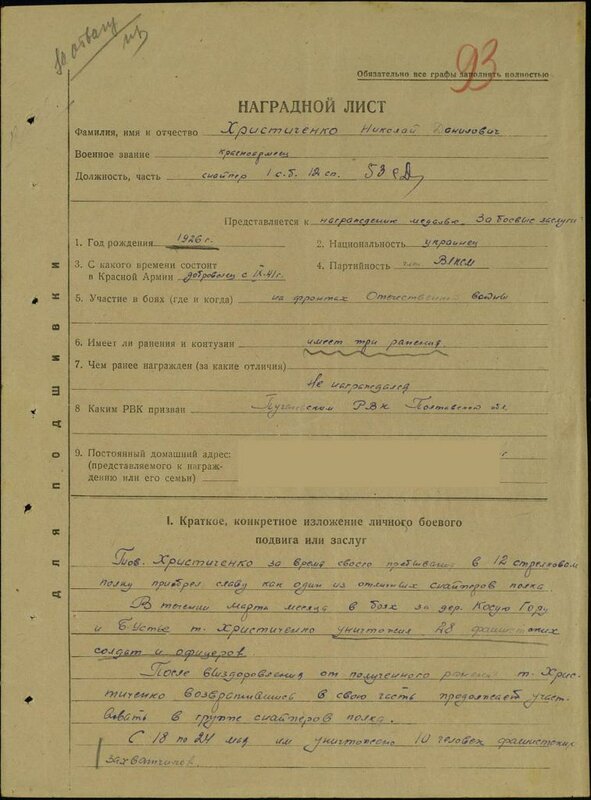 За отвагу
93
Обязательно все графы заполнять полностью
НАГРАДНОЙ ЛИСТ
Фамилия, имя и отчество Христиченко Николай Данилович
Военное звание красноармеец
Должность, часть снайпер 1 с.б. 12 сп. 53 СД
Представляется к награждению медалью За боевые заслуги
1. Год рождения 1926 г. 2. Национальность украинец
3. С какого времени состоит
в Красной Армии доброволец с IX-41 г. 4. Партийность чл. ВЛКСМ
5. Участие в боях (где и когда) на фронтах Отечественной войны
6. Имеет ли ранения и контузии имеет три ранения.
7. Чем ранее награжден (за какие отличия)
Не награждался
8 Каким РВК призван РВК Полтавской
9. Постоянный домашний адрес:
(представляемого к награж-
дению или его семьи)
ДЛЯ ПОДШИВКИ
I. Краткое, конкретное изложение личного боевого
подвига или заслуг
Тов. Христиченко за время своего пребывания в 12 стрелковом
полку приобрел славу как один из отличных снайперов полка
В течении марта месяца в боях за дер. Косую Гору
и Б.Устье т. Христиченко уничтожил 28 фашистских
солдат и офицеров.
После выздоровления от полученного ранения т. Хрис-
тиченко возвратившись в свою часть продолжает участ-
вовать в группе снайперов полка.
С 18 по 24 мая им уничтожено 10 человек фашистских
захватчиков.